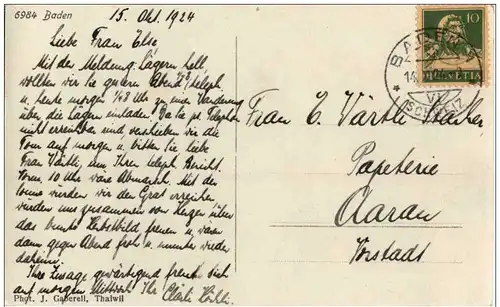 6984 Baden
15. Okt. 1924
Liebe Frau Else,
Mit der Meldung: Lägern hell,
wollten wir Sie gestern Abend 1/2 8 teleph.
u. heute morgen 1/2 8 Uhr zu einer Wanderung
über die Lägern einladen. Da Sie p. Telephon
nicht erreichbar sind, verschieben wir die
Tour auf morgen u. bitten Sie liebe
Frau Wörtli, um Ihren teleph. Bericht.
Vorm. 10 Uhr wäre Abmarsch. Mit der
Sonne würden wir den Grat erreichen
würden uns zusammen von Herzen über
das bunte Herbstbild freuen u. wären
dann gegen Abend froh u. munter wieder
daheim.
Ihre Zusage gewärtigend freut sich
auf morgen Mittwoch Ihr
Phot. J. Gaberell, Thalwil
10
HELVETIA
BADEN
(SCHWEIZ)
Frau E.
Papeterie
Aarau
Vorstadt